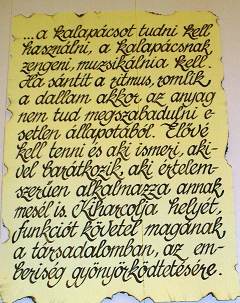 ...a kalapácsot tudni kell
használni, a kalapácsnak
zengeni, muzsikálnia kell.
Ha sántít a ritmus, romlik
a dallam akkor az anyag
nem tud megszabadulni e-
setlen állapotából. Élővé
kell tenni és aki ismeri, aki-
vel barátkozik, aki értelem-
szerűen alkalmazza annak
mesél is. Kiharcolja helyét,
funkciót követel magának
a társadalomban, az em-
beriség gyönyörködtetésére.